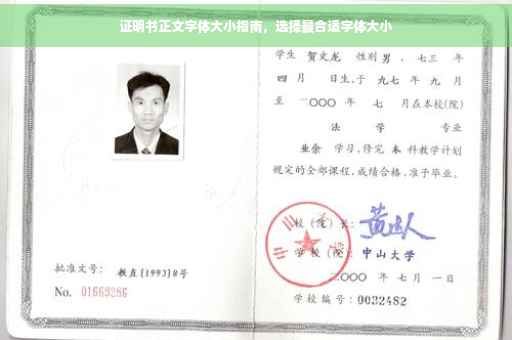 证明书正文字体大小指南，选择最合适字体大小
学生 贺文龙 性别 男 、七三 年
四 月 日生，于 九七 年 九 月
至 二〇〇〇 年 七 月在本校(院)
法 学 专业
业余 学习，修完 本 科教学计划
规定的全部课程，成绩合格，准予毕业。
校（院）长：
学校（院）： 中山大学
二〇〇〇 年 七 月 一 日
学校编号：0032482
批准文号： 教直[1993]8号
No. 01669286